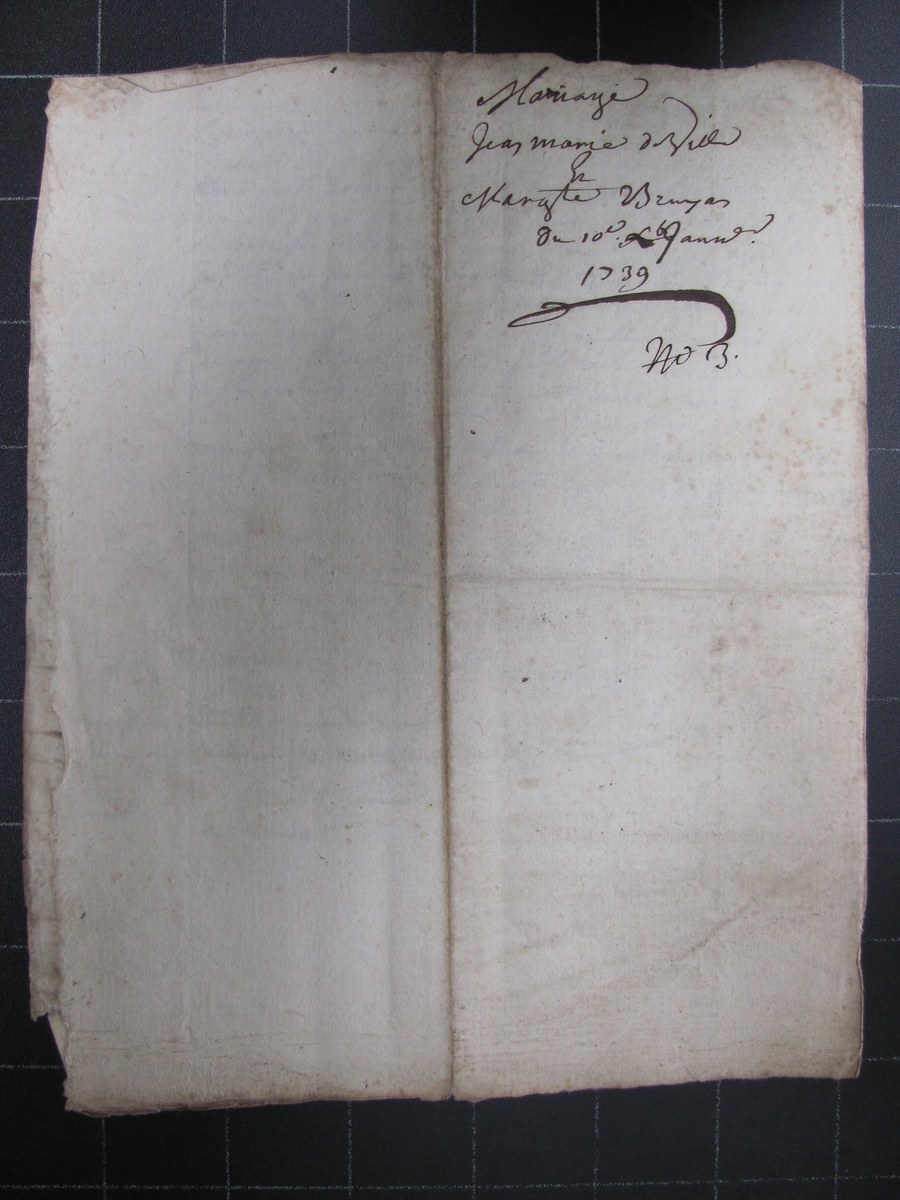 Mariage
Jean marie deville
Et
Margte Bruyas
Du 10e. Janvier.
1739
No 3.